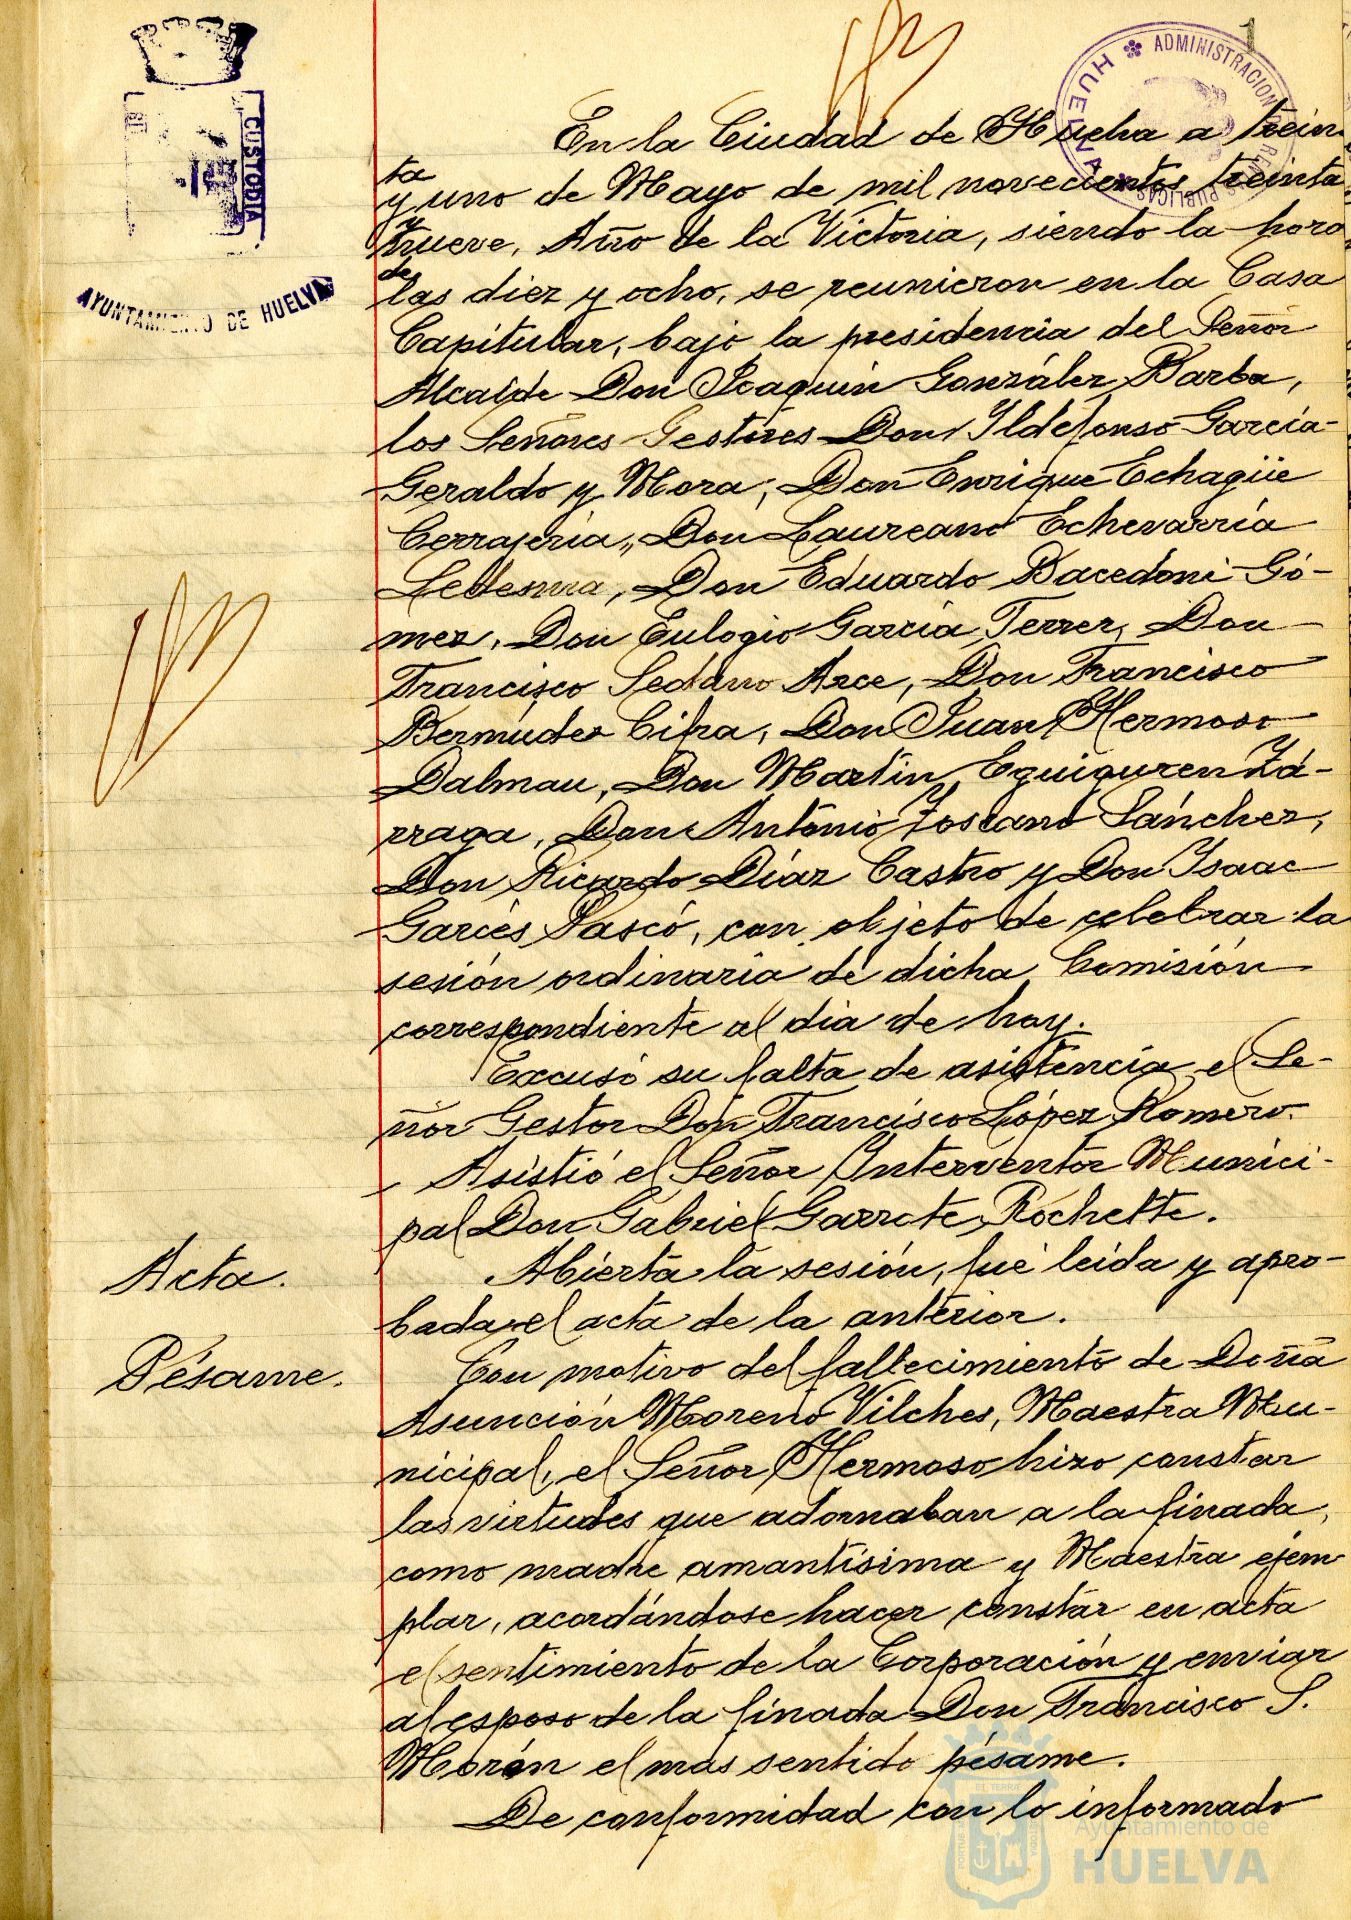 1
ADMINISTRACION DE RENTAS PUBLICAS
HUELVA
CUSTODIA
AYUNTAMIENTO DE HUELVA
En la Ciudad de Huelva a trein-
ta
y uno de Mayo de mil novecientos treinta
y
nueve, Año de la Victoria, siendo la hora
de
las diez y ocho, se reunieron en la Casa
Capitular, bajo la presidencia del Señor
Alcalde Don Joaquín González Barba,
los Señores Gestores Don Ildefonso García-
Geraldo y Mora, Don Enrique Echagüe
Cerrajería, Don Laureano Echevarría
Ledesma, Don Eduardo Bacedoni Gó-
mez, Don Eulogio García Terrer, Don
Francisco Sedano Arce, Don Francisco
Bermúdez Cifra, Don Juan Hermoso
Dalmau, Don Martín Eguiguren Zá-
rraga, Don Antonio Toscano Sánchez,
Don Ricardo Díaz Castro y Don Isaac
Garcés Pascó, con objeto de celebrar la
sesión ordinaria de dicha Comisión
correspondiente al dia de hoy.
Excusó su falta de asistencia el Se-
ñor Gestor Don Francisco López Romero.
Asistió el Señor Interventor Munici-
pal Don Gabriel Garrote Rochette.
Acta.
Abierta la sesión, fué leida y apro-
bada el acta de la anterior.
Pésame.
Con motivo del fallecimiento de Doña
Asunción Moreno Vilches, Maestra Mu-
nicipal, el Señor Hermoso hizo constar
las virtudes que adornaban a la finada,
como madre amantísima y Maestra ejem
plar, acordándose hacer constar en acta
el sentimiento de la Corporación y enviar
al esposo de la finada Don Francisco S.
Morón el mas sentido pésame.
De conformidad con lo informado
Ayuntamiento de
HUELVA